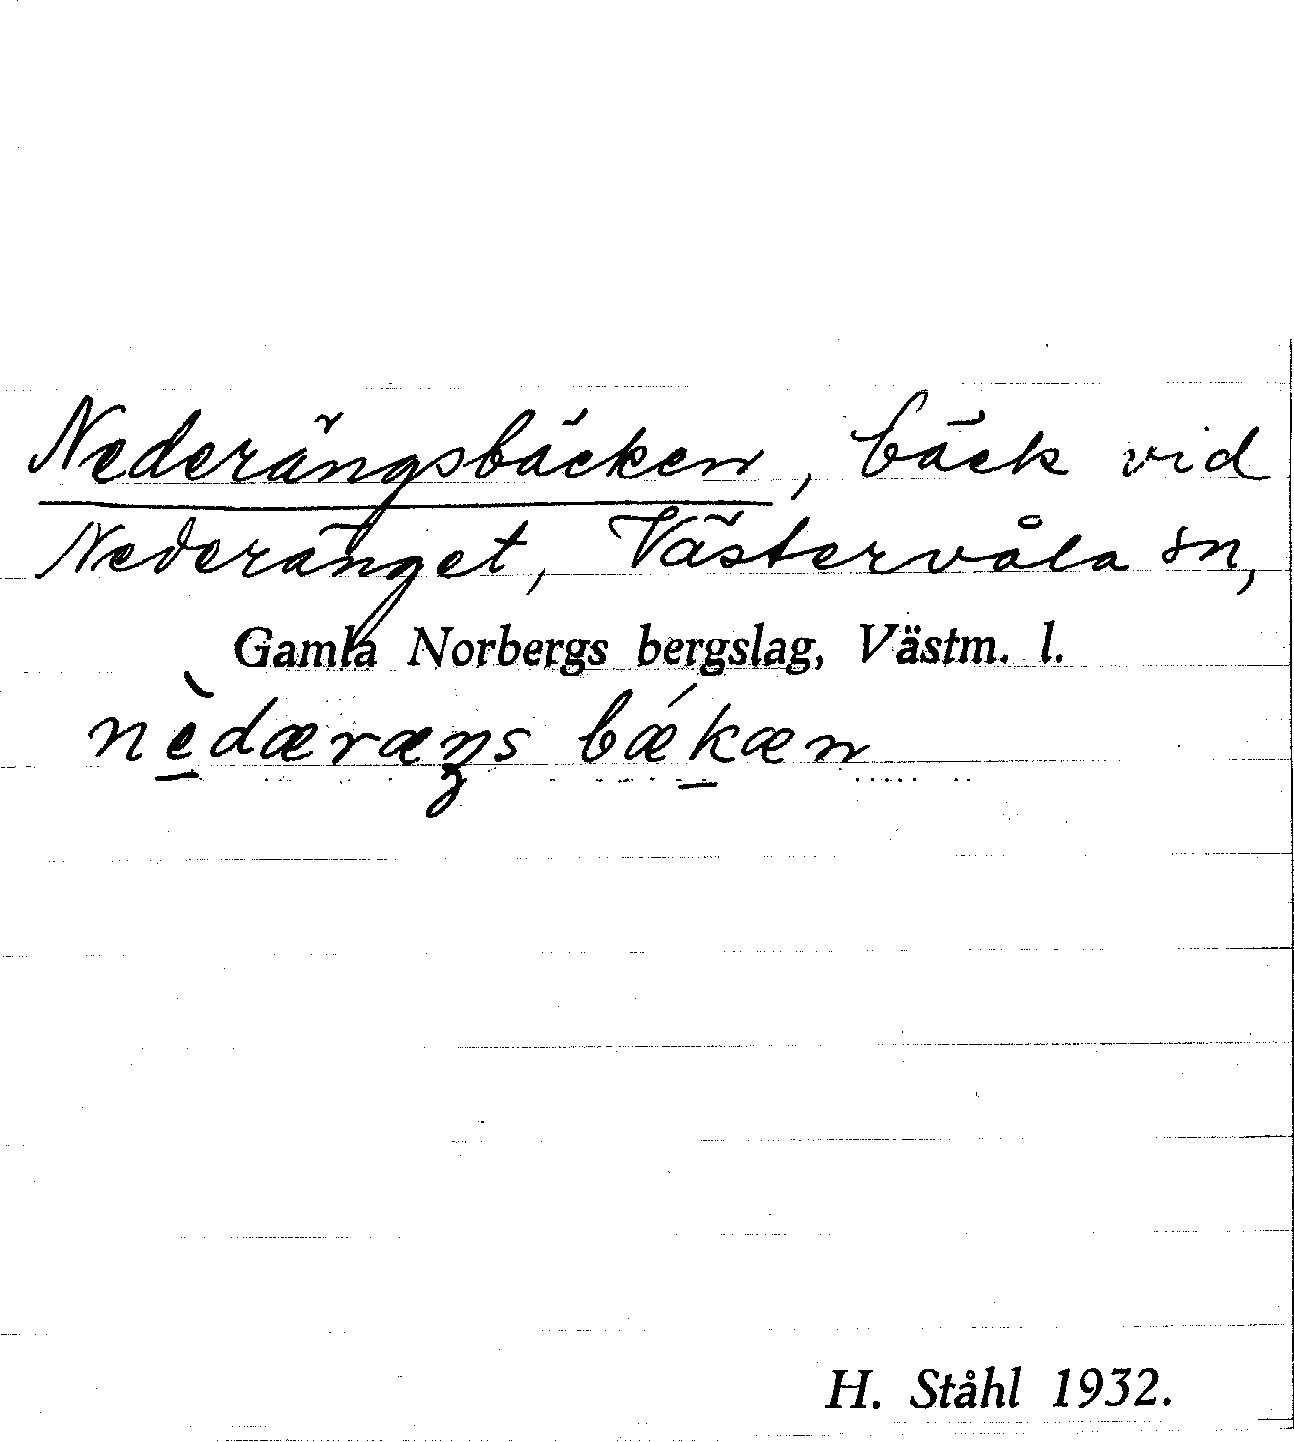 Nederängsbäcken, bäck vid
Nederänget, Västervåla sn,
Gamla Norbergs bergslag, Västm. l.
nè̱dæræŋs bǽḵæn
H. Ståhl 1932.